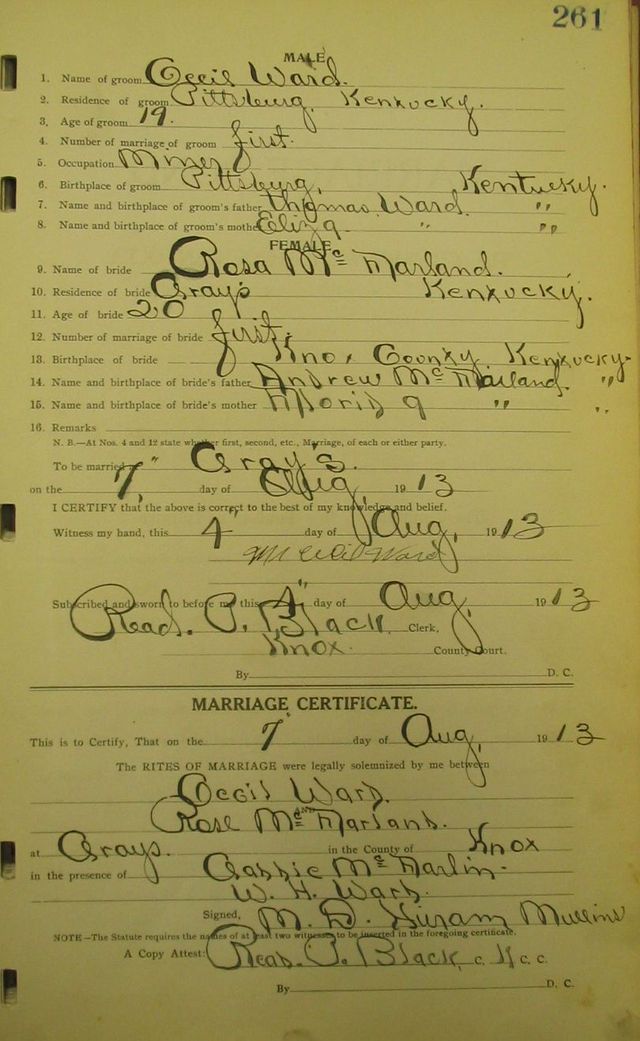 261
MALE
1. Name of groom Cecil Ward.
2. Residence of groom Pittsburg, Kentucky.
3. Age of groom 19.
4. Number of marriage of groom first.
5. Occupation Miner
6. Birthplace of groom Pittsburg, Kentucky.
7. Name and birthplace of groom's father Thomas Ward. " "
8. Name and birthplace of groom's mother Eliza " "
FEMALE
9. Name of bride Rosa Mc Farland.
10. Residence of bride Grays Kentucky.
11. Age of bride 20
12. Number of marriage of bride first.
13. Birthplace of bride Knox County Kentucky.
14. Name and birthplace of bride's father Andrew Mc Farland. "
15. Name and birthplace of bride's mother " "
16. Remarks
N. B.—At Nos. 4 and 12 state whether first, second, etc., Marriage, of each or either party.
To be married Gray's.
on the 7" day of Aug, 1913
I CERTIFY that the above is correct to the best of my knowledge and belief.
Witness my hand, this 4" day of Aug, 1913
Cecil Ward
Subscribed and sworn to before me this 4" day of Aug, 1913
Read. P. Black, Clerk,
Knox. County Court.
By D. C.
MARRIAGE CERTIFICATE.
This is to Certify, That on the 7" day of Aug, 1913
The RITES OF MARRIAGE were legally solemnized by me between
Cecil Ward.
AND
Rose Mc Farland.
at Grays. in the County of Knox
in the presence of Mc Farlin.
W. H. Ward.
Signed, M. D. Hiram Mullins
NOTE—The Statute requires the names of at least two witnesses to be inserted in the foregoing certificate.
A Copy Attest: Read. P. Black, C. K C. C.
By D. C.